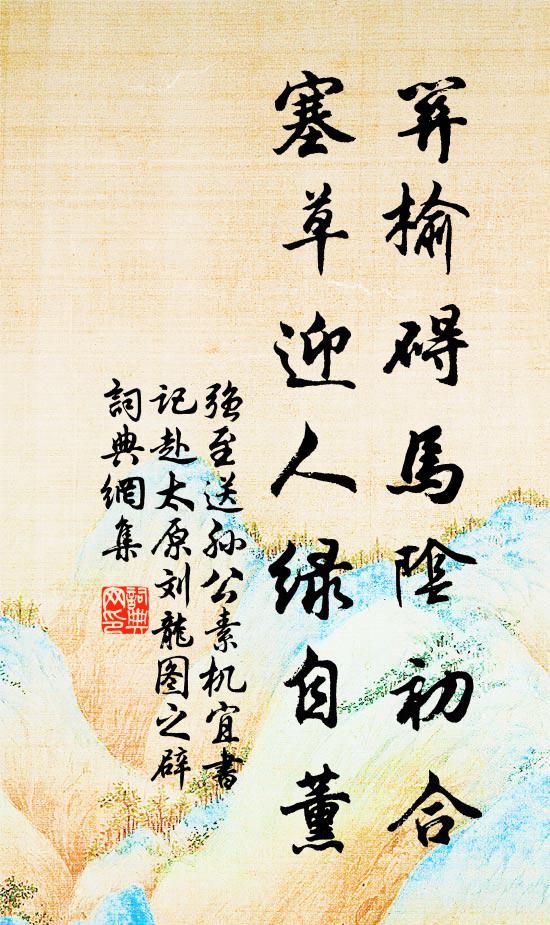 關榆碍馬陰初合
塞草迎人绿自薰
强至送孫公素机宜書
记赴太原刘龍图之辟
詞典網集
詞典
网印